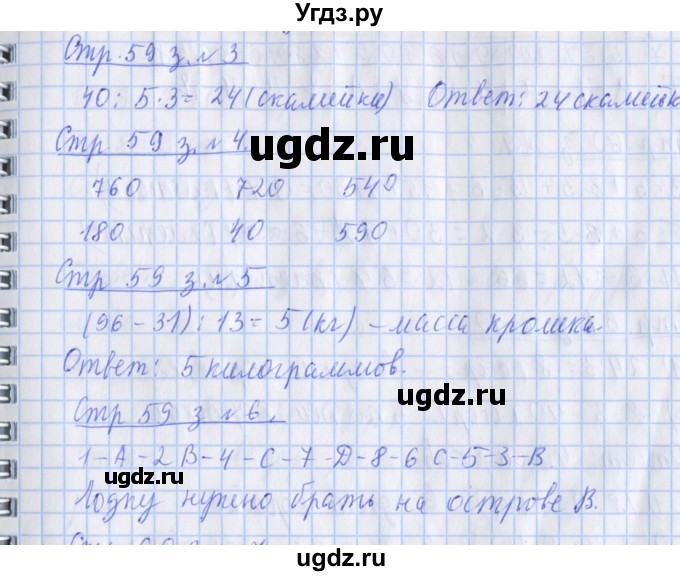 Угдз.ру
Стр. 59 з. № 3
40 : 5 · 3 = 24 (скамейки) Ответ: 24 скамейк
Стр 59 з. № 4.
ugdz.ru
760 720 540
180 40 590
Стр 59 з. № 5
(96 - 31) : 13 = 5 (кг) – масса кролика.
Ответ: 5 килограммов.
ugdz.ru
ugdz.ru
Стр 59 з № 6.
1-А-2 В-4-С-7-D-8-6 С-5-3-В
Лодку нужно брать на острове В.
ugdz.ru
ugdz.ru